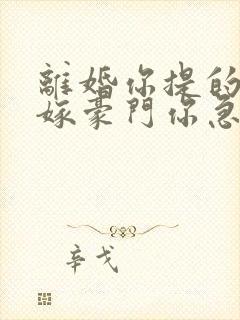 離婚你提的
嫁豪門你急
辛戈